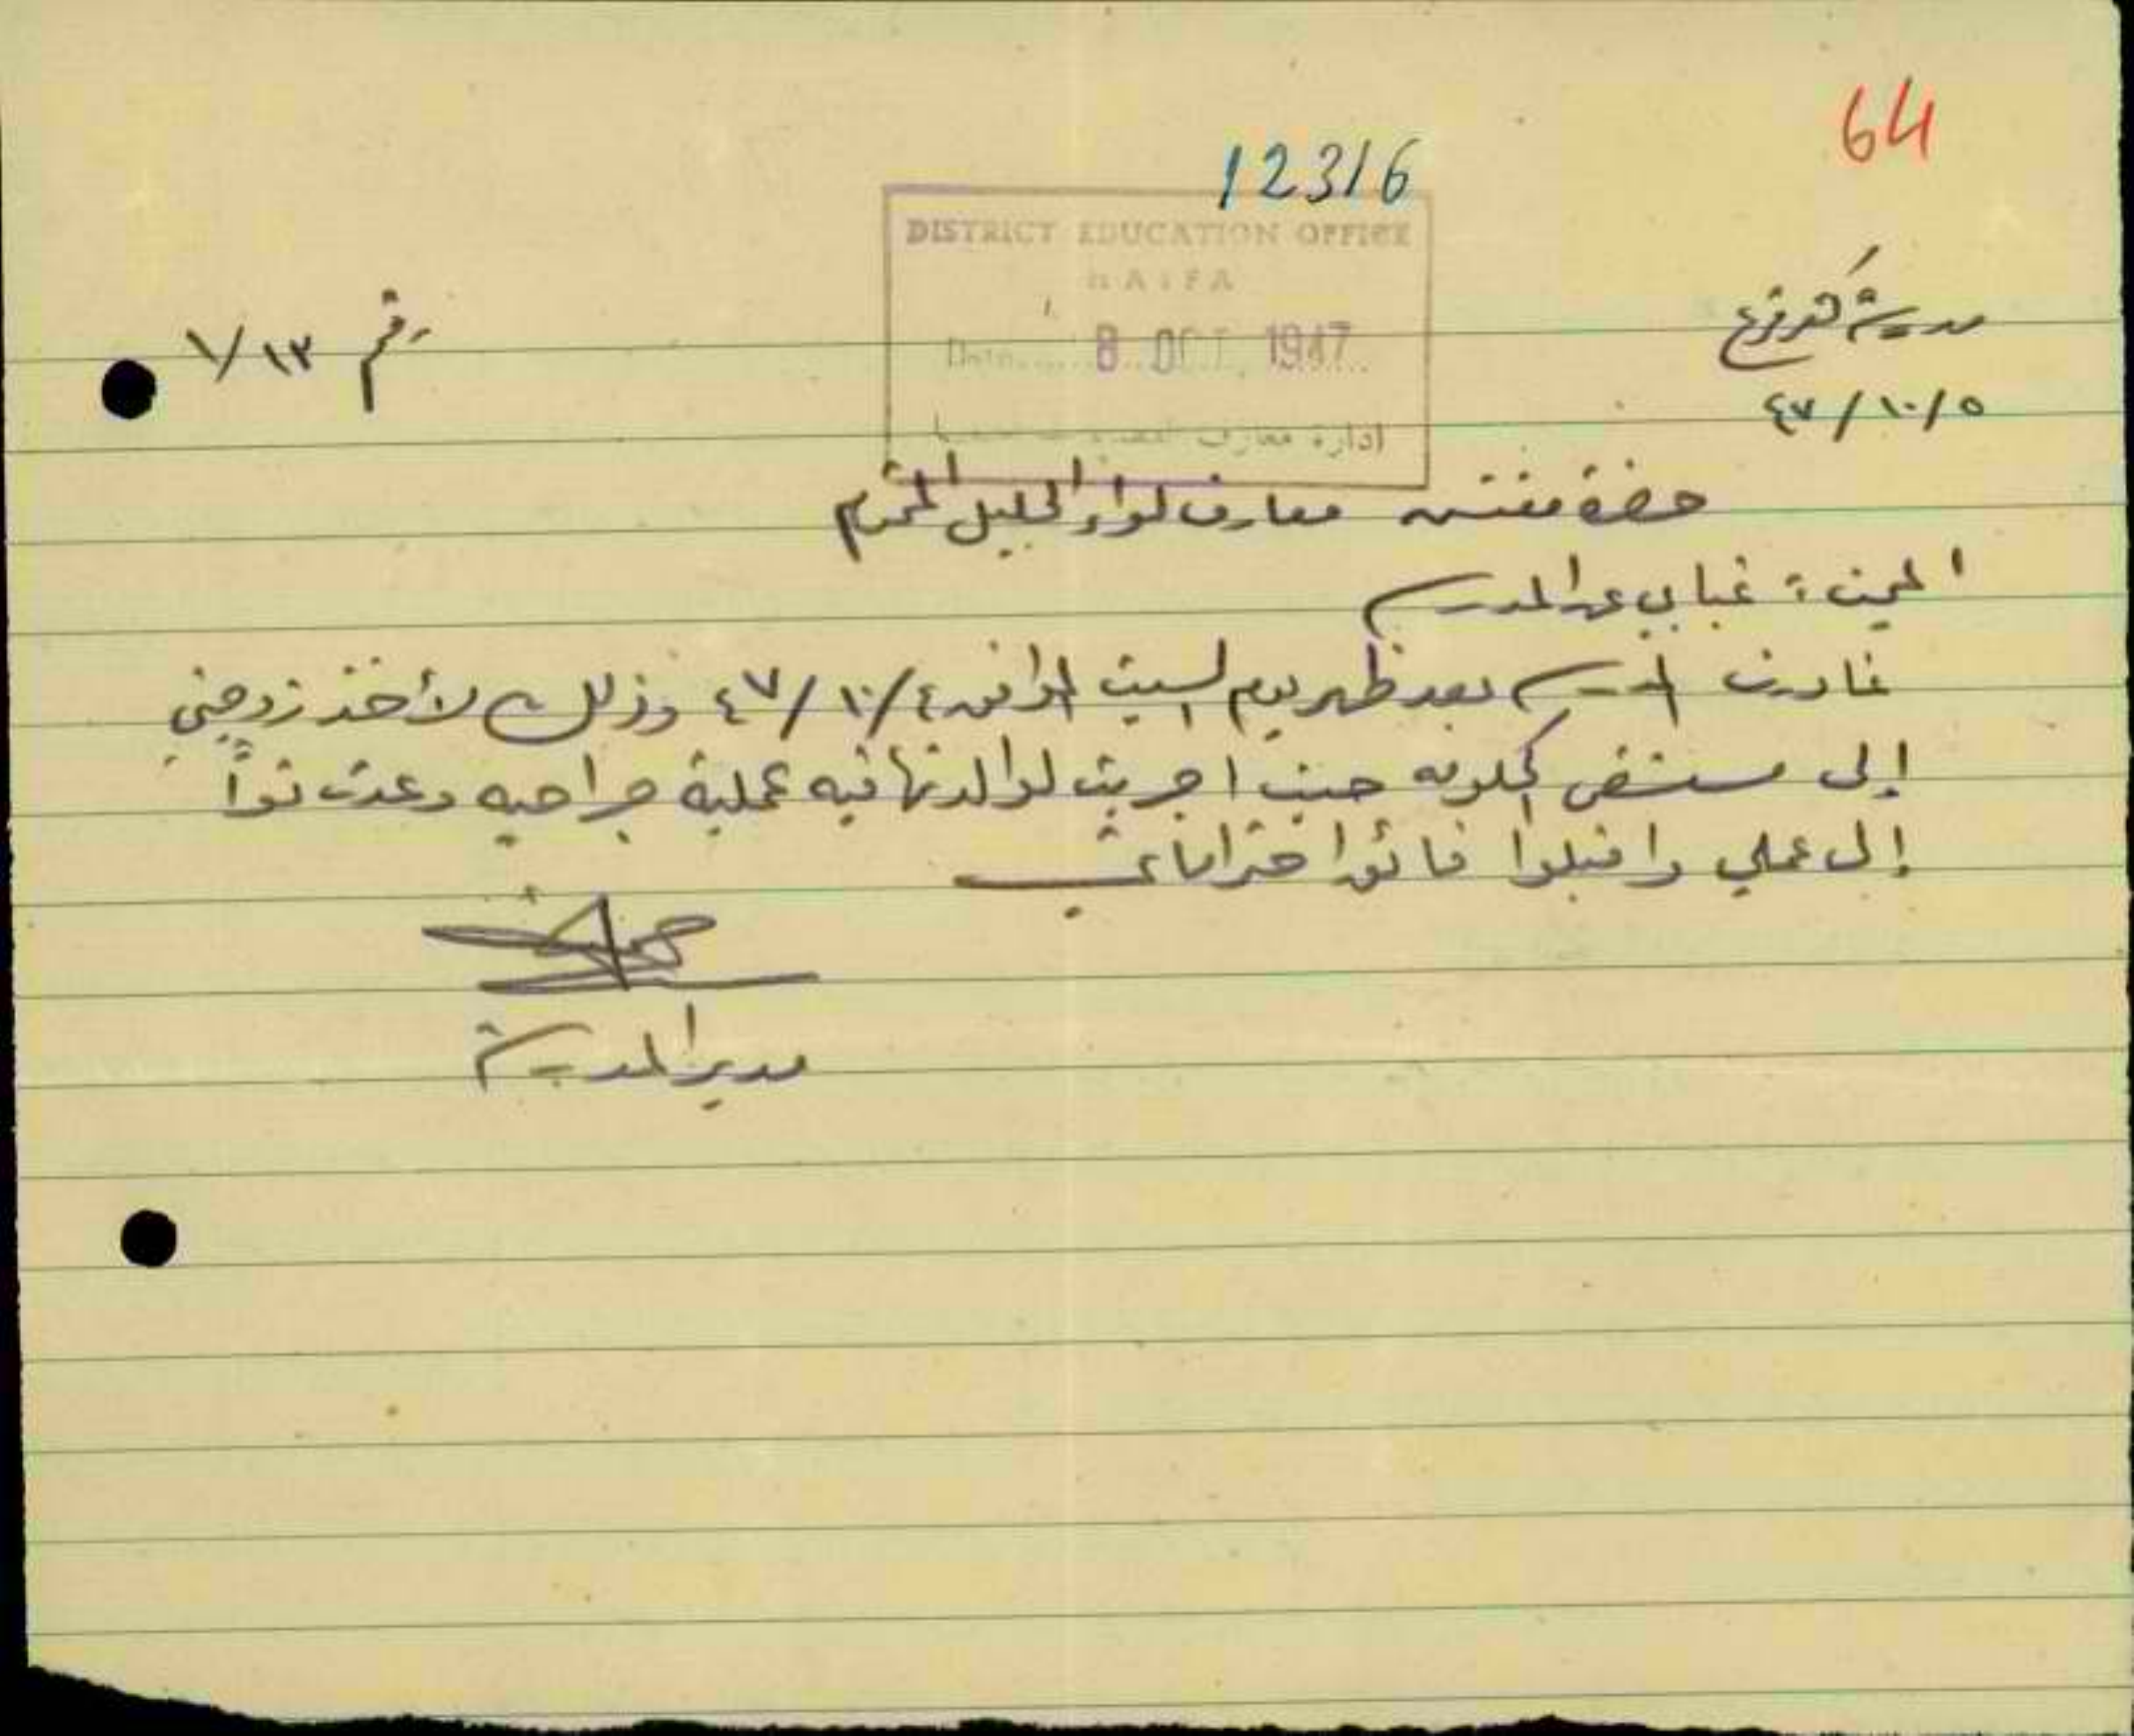 64
12316
DISTRICT EDUCATION OFFICE
HAIFA
Date..... 8 OCT. 1947
ادارة معارف
مدرسة كفر قرع
رقم ١٣/١
٥/١٠/٤٧
حضرة مفتش معارف لواء الجليل المحترم
المبحث: غيابي عن المدرسة
غادرت المدرسة بعد ظهر يوم السبت الموافق ٤/١٠/٤٧ وذلك لأخذ زوجتي
إلى مستشفى حيث اجريت لوالدتها فيه عملية جراحيه وعدت تواً
إلى عملي واقبلوا فائق احتراماتي
مدير المدرسة